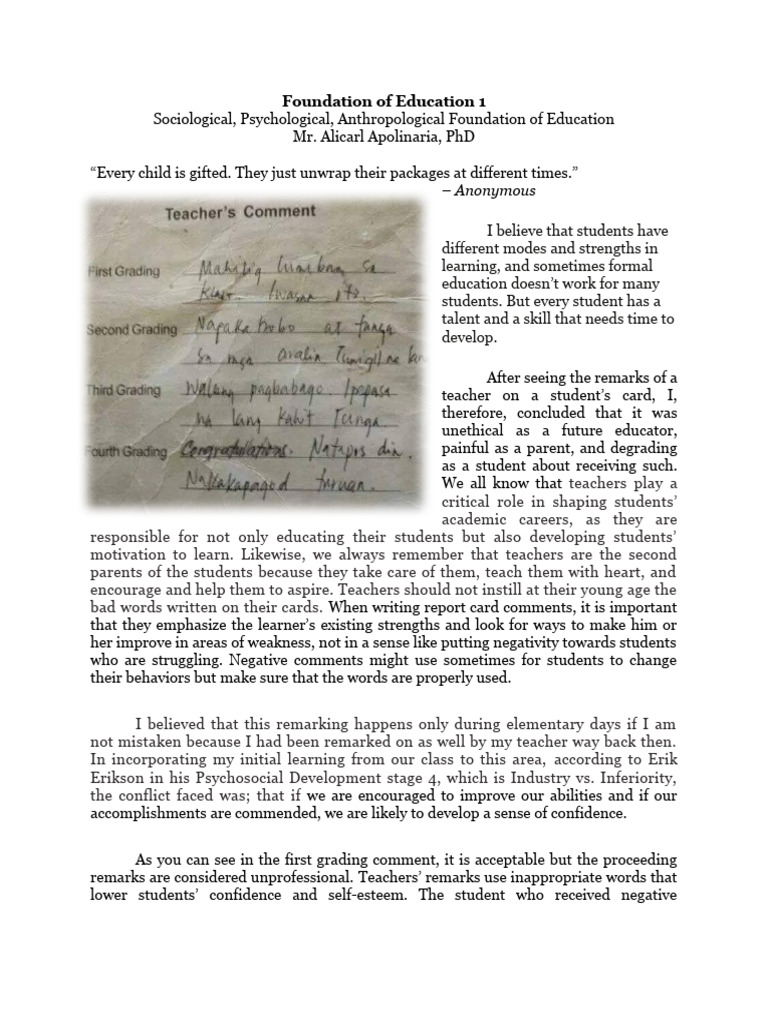 Foundation of Education 1
Sociological, Psychological, Anthropological Foundation of Education
Mr. Alicarl Apolinaria, PhD
“Every child is gifted. They just unwrap their packages at different times.”
– Anonymous
Teacher's Comment
First Grading Mahilig lumiban sa
klase. Iwasan ito.
Second Grading Napaka bobo at tanga
sa mga aralin Tumigil na lan
Third Grading Walang pagbabago. Ipapasa
na lang kahit Tanga.
Fourth Grading Congratulations. Natapos din.
Nakakapagod turuan.
I believe that students have
different modes and strengths in
learning, and sometimes formal
education doesn’t work for many
students. But every student has a
talent and a skill that needs time to
develop.
After seeing the remarks of a
teacher on a student’s card, I,
therefore, concluded that it was
unethical as a future educator,
painful as a parent, and degrading
as a student about receiving such.
We all know that teachers play a
critical role in shaping students’
academic careers, as they are
responsible for not only educating their students but also developing students’
motivation to learn. Likewise, we always remember that teachers are the second
parents of the students because they take care of them, teach them with heart, and
encourage and help them to aspire. Teachers should not instill at their young age the
bad words written on their cards. When writing report card comments, it is important
that they emphasize the learner’s existing strengths and look for ways to make him or
her improve in areas of weakness, not in a sense like putting negativity towards students
who are struggling. Negative comments might use sometimes for students to change
their behaviors but make sure that the words are properly used.
I believed that this remarking happens only during elementary days if I am
not mistaken because I had been remarked on as well by my teacher way back then.
In incorporating my initial learning from our class to this area, according to Erik
Erikson in his Psychosocial Development stage 4, which is Industry vs. Inferiority,
the conflict faced was; that if we are encouraged to improve our abilities and if our
accomplishments are commended, we are likely to develop a sense of confidence.
As you can see in the first grading comment, it is acceptable but the proceeding
remarks are considered unprofessional. Teachers’ remarks use inappropriate words that
lower students’ confidence and self-esteem. The student who received negative